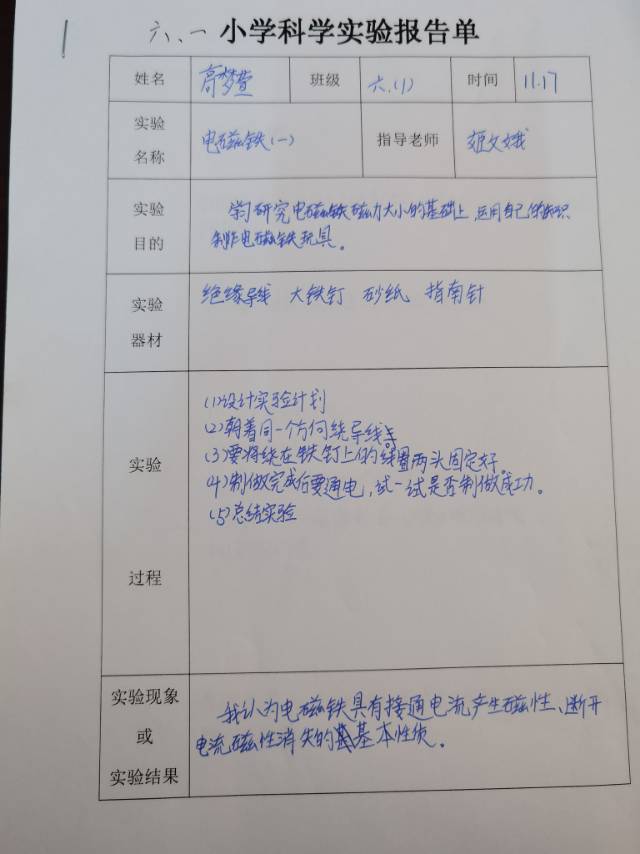 六、一 小学科学实验报告单
姓名 高梦萱 班级 六.(1) 时间 11.17
实验名称 电磁铁(一) 指导老师 文娥
实验目的
学习研究电磁铁磁力大小的基础上,运用自己的知识
制作电磁铁玩具。
实验器材
绝缘导线 大铁钉 砂纸 指南针
实验过程
(1)设计实验计划
(2)朝着同一个方向绕导线等
(3)要将绕在铁钉上的线圈两头固定好。
(4)制做完成后要通电,试一试是否制做成功。
(5)总结实验
实验现象或实验结果
我认为电磁铁具有接通电流产生磁性、断开
电流磁性消失的基本性质。